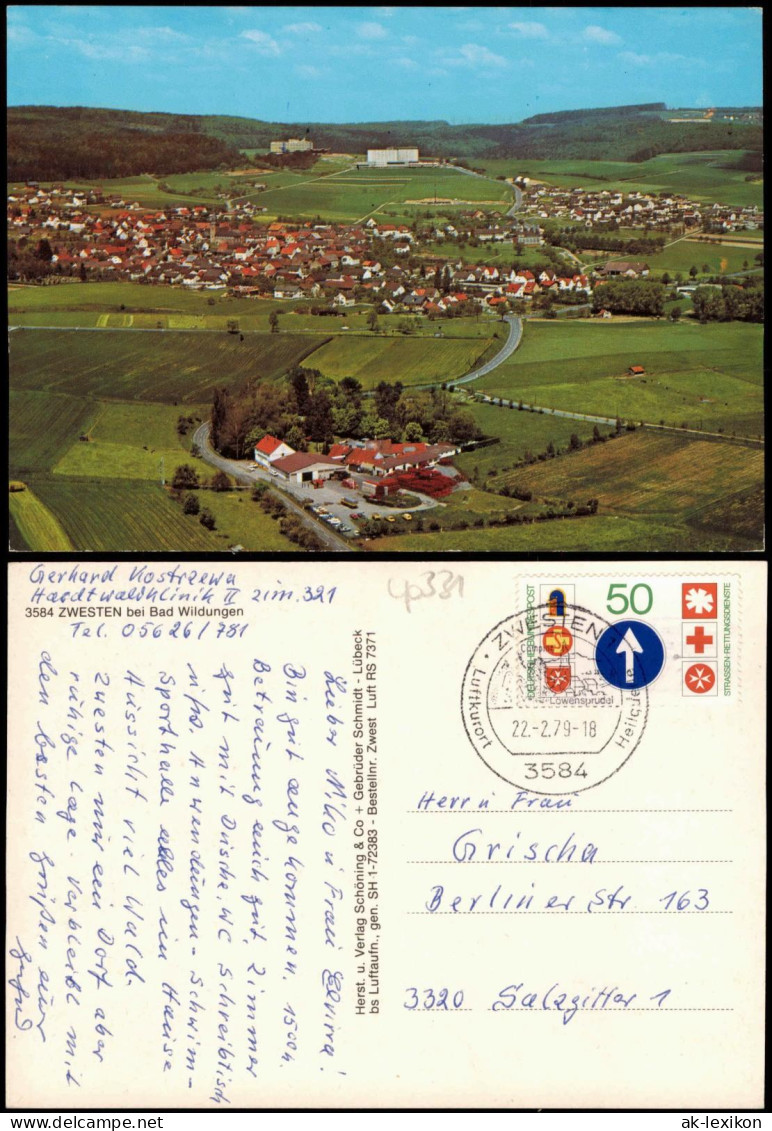 Gerhard Kostrzewa
Hardtwaldklinik II zim. 321
3584 ZWESTEN bei Bad Wildungen
Tel. 05626/781
Lieber Niko u Frau Elvira!
Bin gut angekommen. 1500h.
Betreuung auch gut. Zimmer
gut mit Dusche, WC Schreibtisch
usw. Anwendungen - Schwim-
Sporthalle alles im Hause
Aussicht viel Wald.
Zwesten nur ein Dorf aber
ruhige Lage. Verbleibe mit
den besten Grüßen euer
Herst. u. Verlag Schöning & Co + Gebrüder Schmidt - Lübeck
bs Luftaufn., gen. SH 1-72383 - Bestellnr. Zwest Luft RS 7371
cp331
DEUTSCHE BUNDESPOST
50
STRASSEN-RETTUNGSDIENSTE
ZWESTEN 1
Luftkurort
Heilquelle
Löwensprudel
22.-2.79-18
3584
Herr u Frau
Grischa
Berliner Str 163
3320 Salzgitter 1
ak-lexikon
ak-lexikon.com